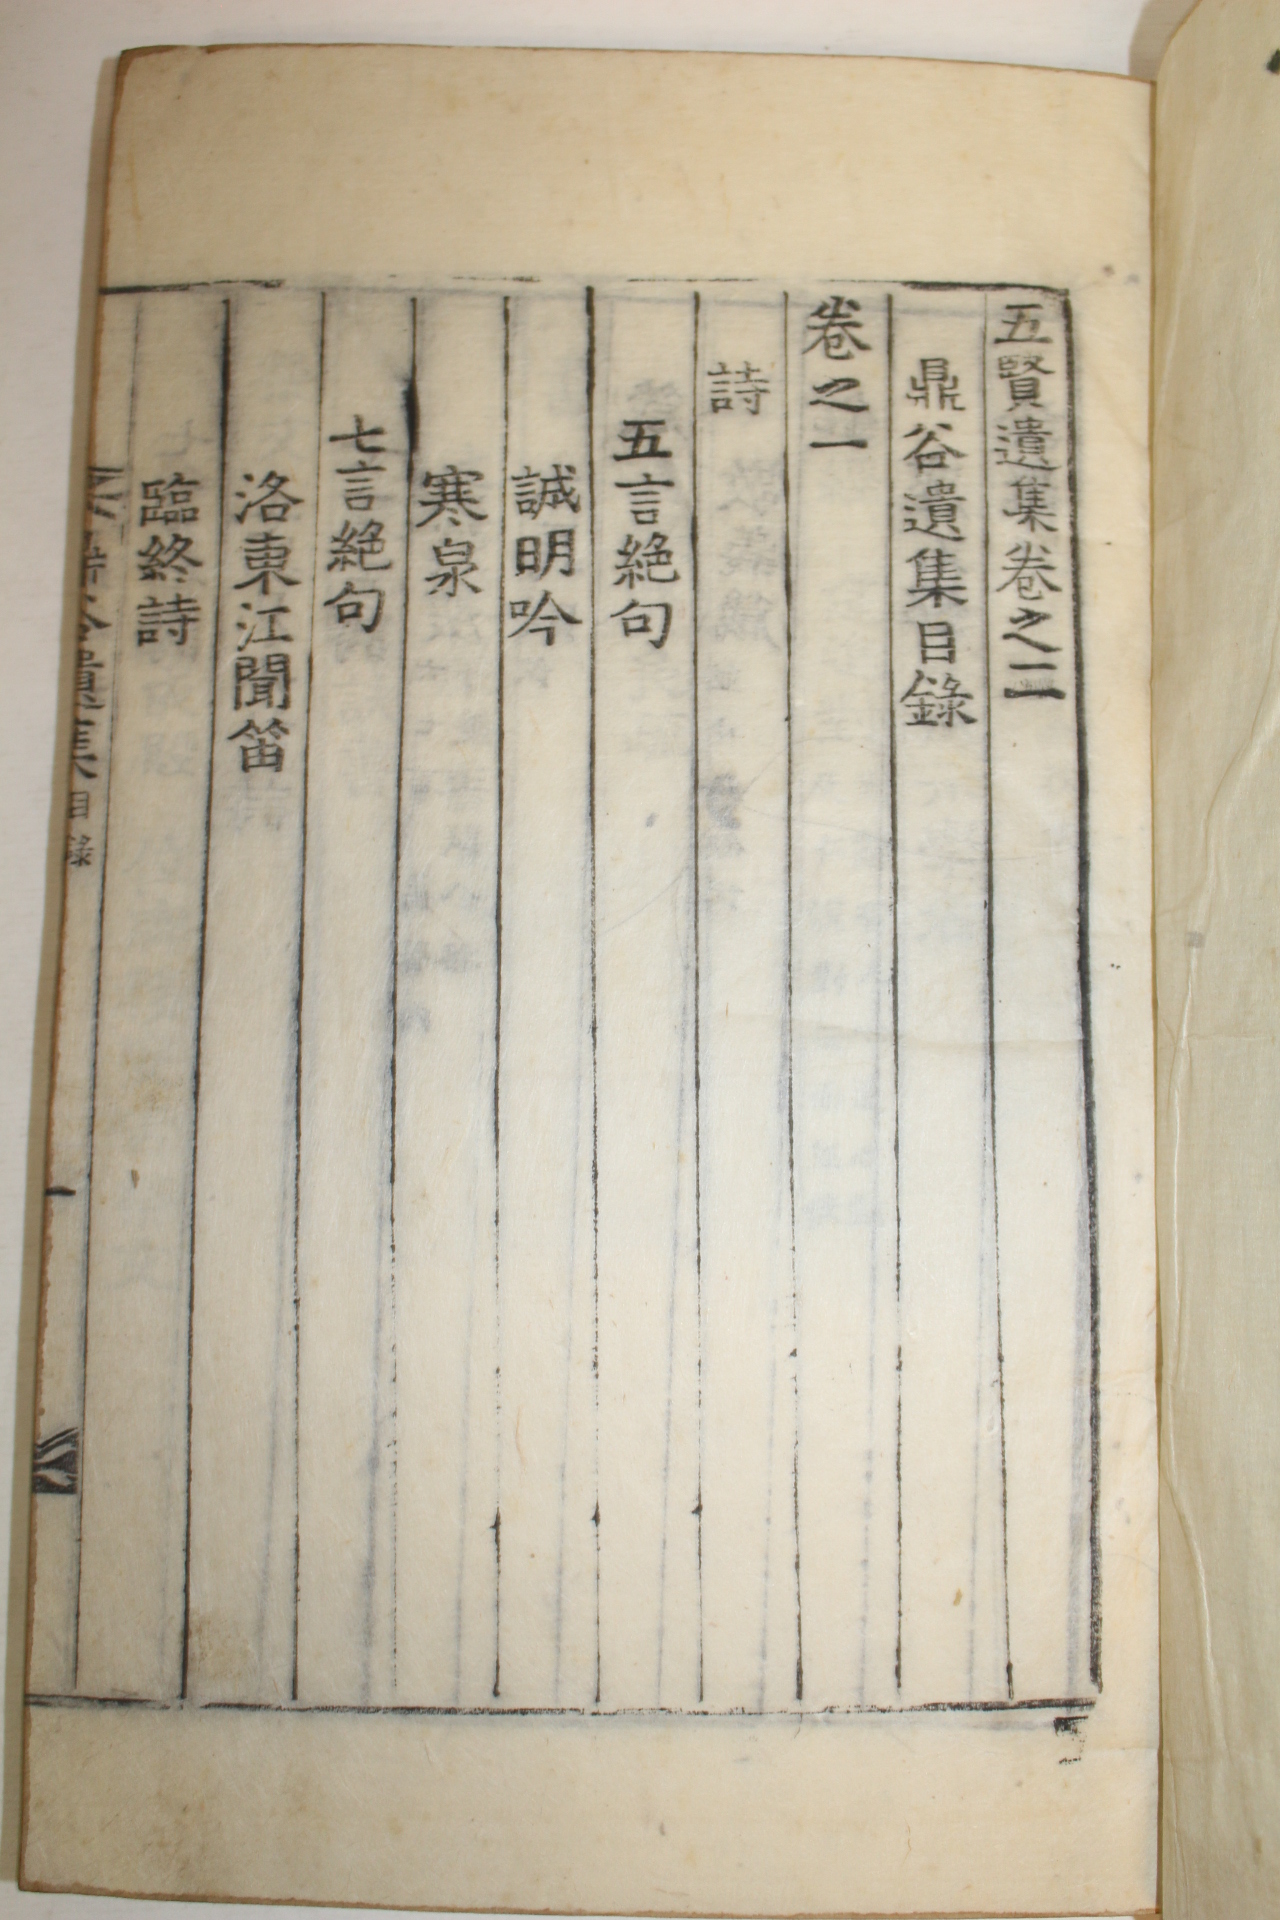 五賢遺集卷之二
鼎谷遺集目錄
卷之一
詩
五言絶句
誠明吟
寒泉
七言絶句
洛東江聞笛
臨終詩
谷遺集目錄
一